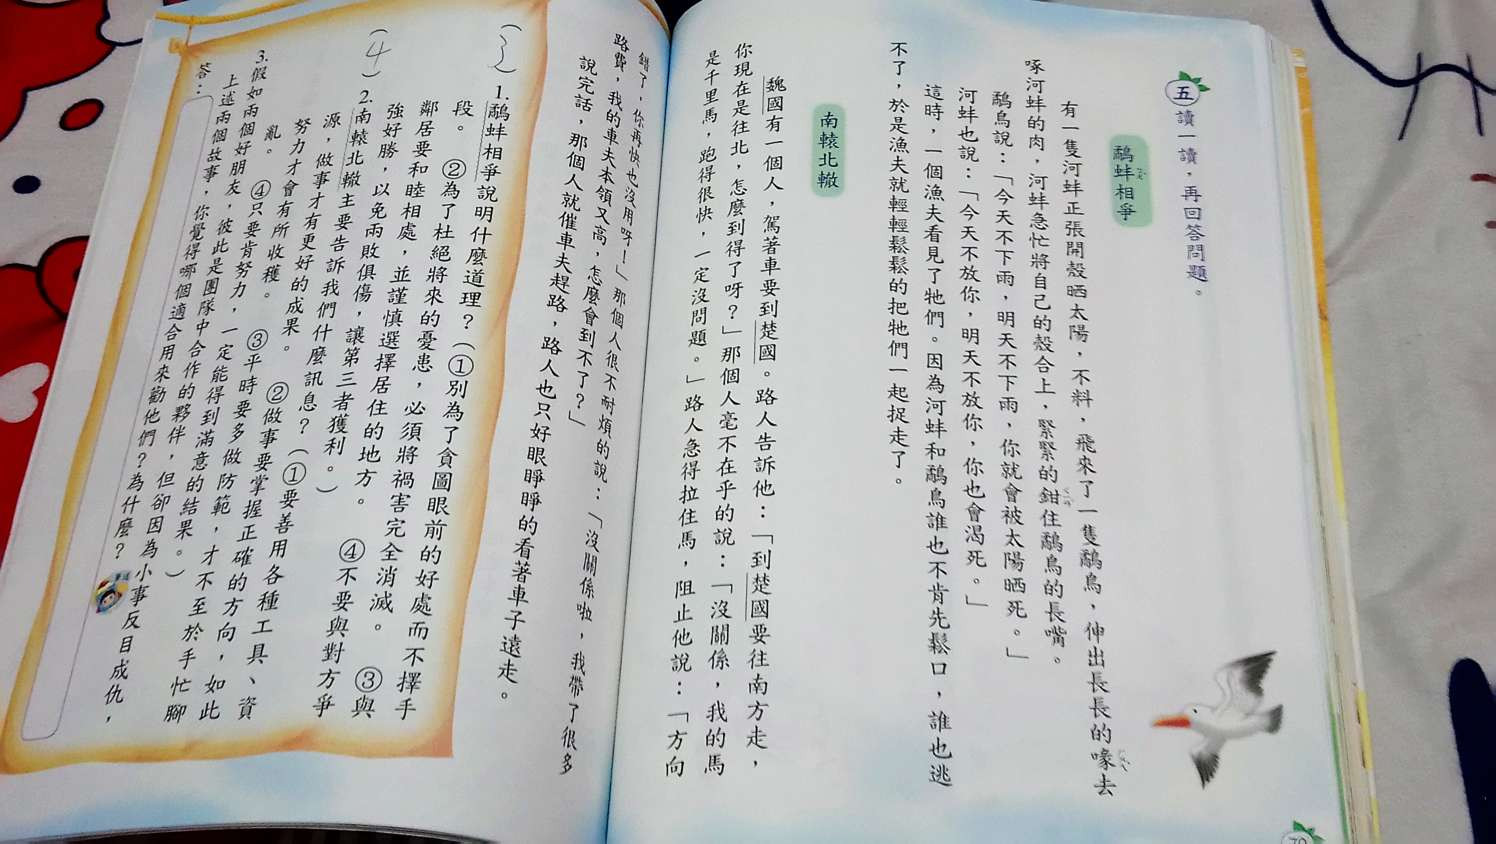 五 讀一讀，再回答問題。
鷸蚌相爭
有一隻河蚌正張開殼晒太陽，不料，飛來了一隻鷸鳥，伸出長長的喙去
啄河蚌的肉，河蚌急忙將自己的殼合上，緊緊的鉗住鷸鳥的長嘴。
鷸鳥說：「今天不下雨，明天不下雨，你就會被太陽晒死。」
河蚌也說：「今天不放你，明天不放你，你也會渴死。」
這時，一個漁夫看見了牠們。因為河蚌和鷸鳥誰也不肯先鬆口，誰也逃
不了，於是漁夫就輕輕鬆鬆的把牠們一起捉走了。
南轅北轍
魏國有一個人，駕著車要到楚國。路人告訴他：「到楚國要往南方走，
你現在是往北，怎麼到得了呀？」那個人毫不在乎的說：「沒關係，我的馬
是千里馬，跑得很快，一定沒問題。」路人急得拉住馬，阻止他說：「方向
錯了，你再快也沒用呀！」那個人很不耐煩的說：「沒關係啦，我帶了很多
路費，我的車夫本領又高，怎麼會到不了？」
說完話，那個人就催車夫趕路，路人也只好眼睜睜的看著車子遠走。
(3) 1.鷸蚌相爭說明什麼道理？（①別為了貪圖眼前的好處而不擇手
段。 ②為了杜絕將來的憂患，必須將禍害完全消滅。 ③與
鄰居要和睦相處，並謹慎選擇居住的地方。 ④不要與對方爭
強好勝，以免兩敗俱傷，讓第三者獲利。）
(4) 2.南轅北轍主要告訴我們什麼訊息？（①要善用各種工具、資
源，做事才有更好的成果。 ②做事要掌握正確的方向，如此
努力才會有所收穫。 ③平時要多做防範，才不至於手忙腳
亂。 ④只要肯努力，一定能得到滿意的結果。）
3.假如兩個好朋友，彼此是團隊中合作的夥伴，但卻因為小事反目成仇，
上述兩個故事，你覺得哪個適合用來勸他們？為什麼？
答：